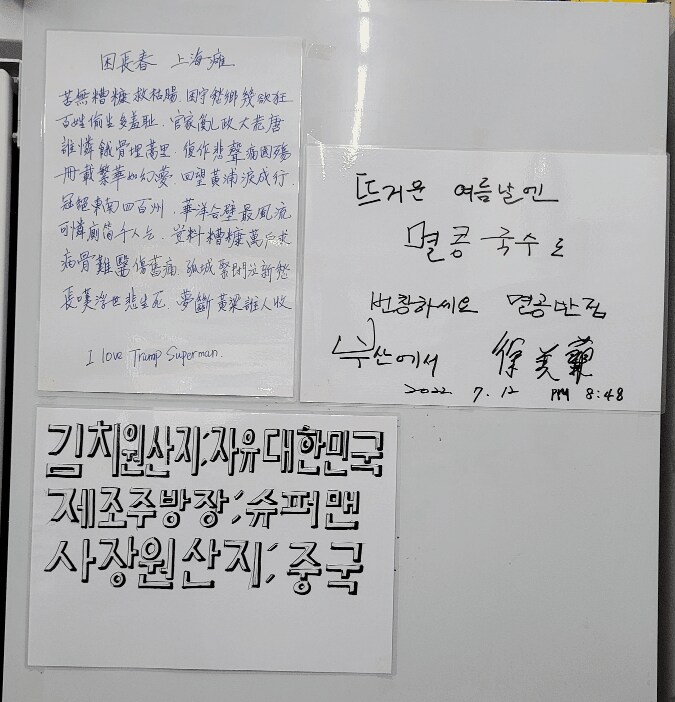 困長春 上海癱
苦無糟糠救枯腸 困守愁鄉幾欲狂
百姓偷生多羞恥 官家亂政大荒唐
誰憐餓骨埋萬里 復作悲聲病國殤
冊載繁華如幻夢 回望黃浦淚成行
冠絕東南四百洲 華洋合壁最風流
可憐廁筒千人乞 豈料糟糠萬戶求
病骨難醫傷舊痛 孤城緊閉泣新愁
長嘆浮世悲生死 夢斷黃梁誰人收
I love Trump Superman.
뜨거운 여름날엔
멸콩 국수로
번창하세요 멸공반점
부산에서 徐美蘭
2022 7.12 PM 8:48
김치원산지;자유대한민국
제조주방장;슈퍼맨
사장원산지;중국